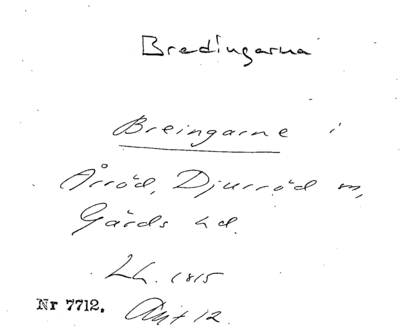 Bredingarna
Breingarne i
Årröd, Djurröd m,
Gärds hd.
LL. 1815
Nr 7712. Akt 12.